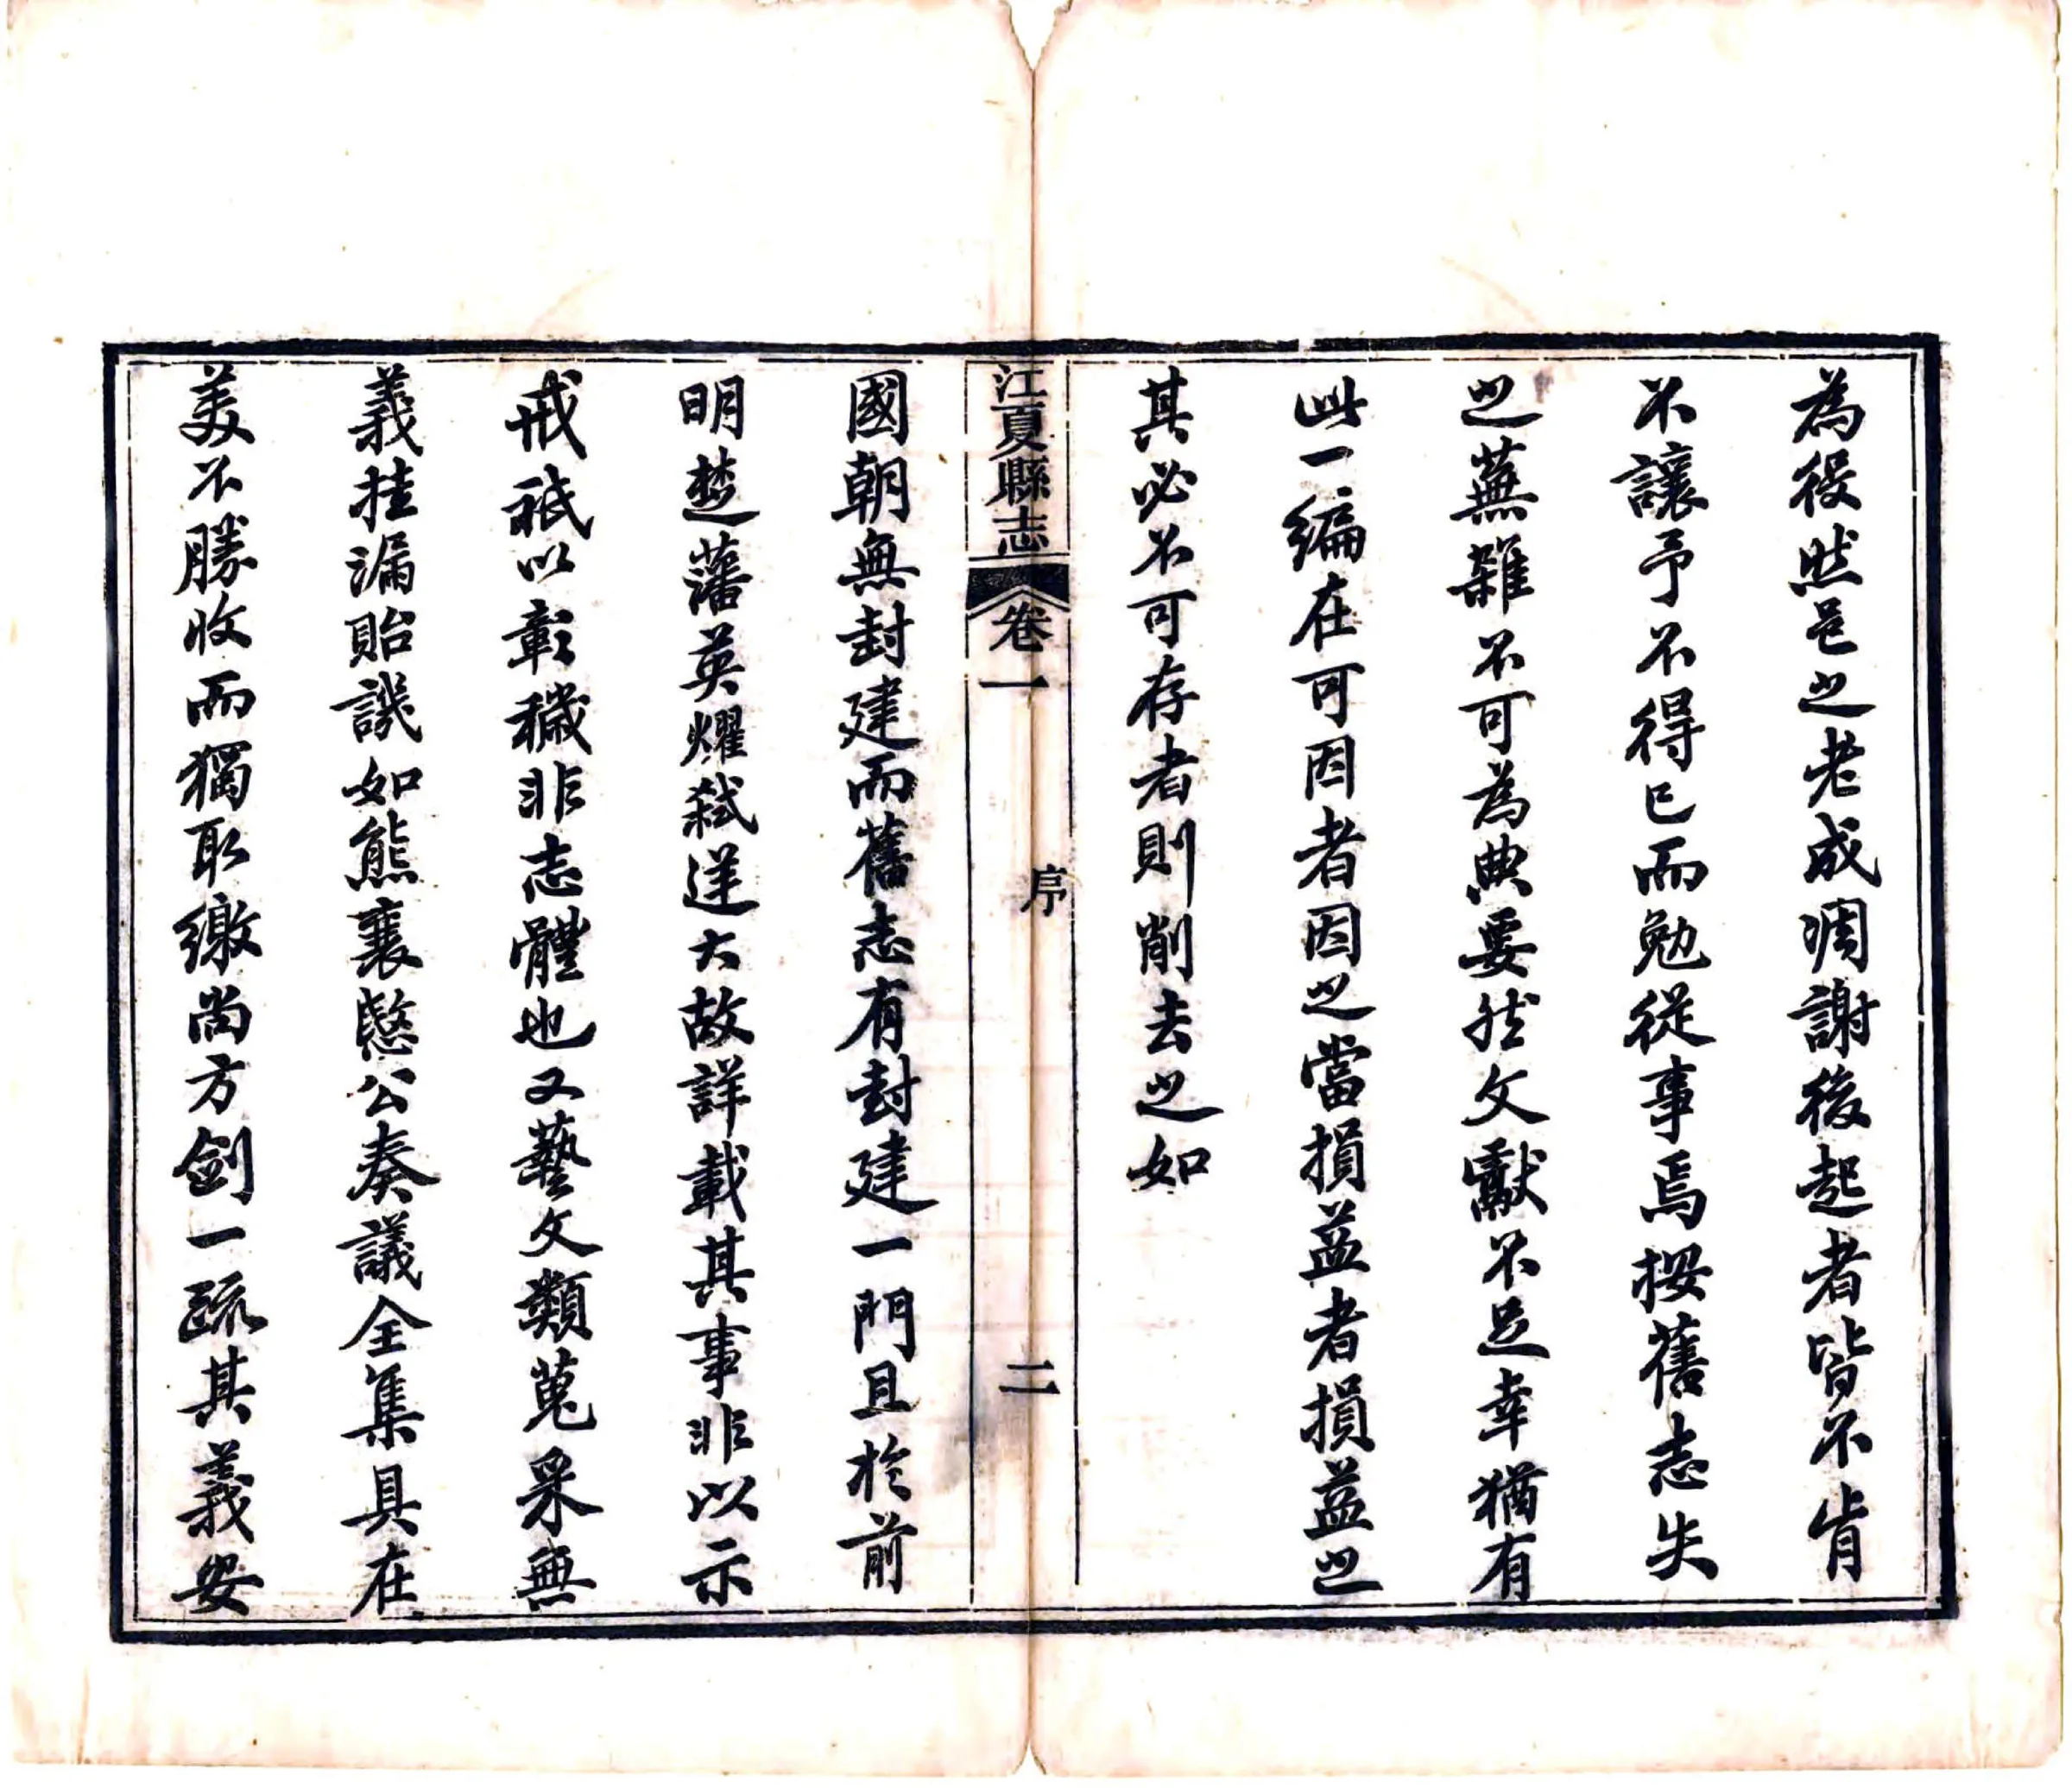 為役然邑之老成凋謝後起者皆不肯
不讓予不得已而勉從事焉按舊志失
之蕪雜不可為典要然文獻不足幸猶有
此一編在可因者因之當損益者損益之
其必不可存者則削去之如
江夏縣志 卷一 序 二
國朝無封建而舊志有封建一門且於前
明楚藩英燿弒逆大故詳載其事非以示
戒祇以彰穢非志體也又藝文類蒐采無
義挂漏貽譏如熊襄愍公奏議全集具在
美不勝收而獨取繳尚方劍一疏其義安